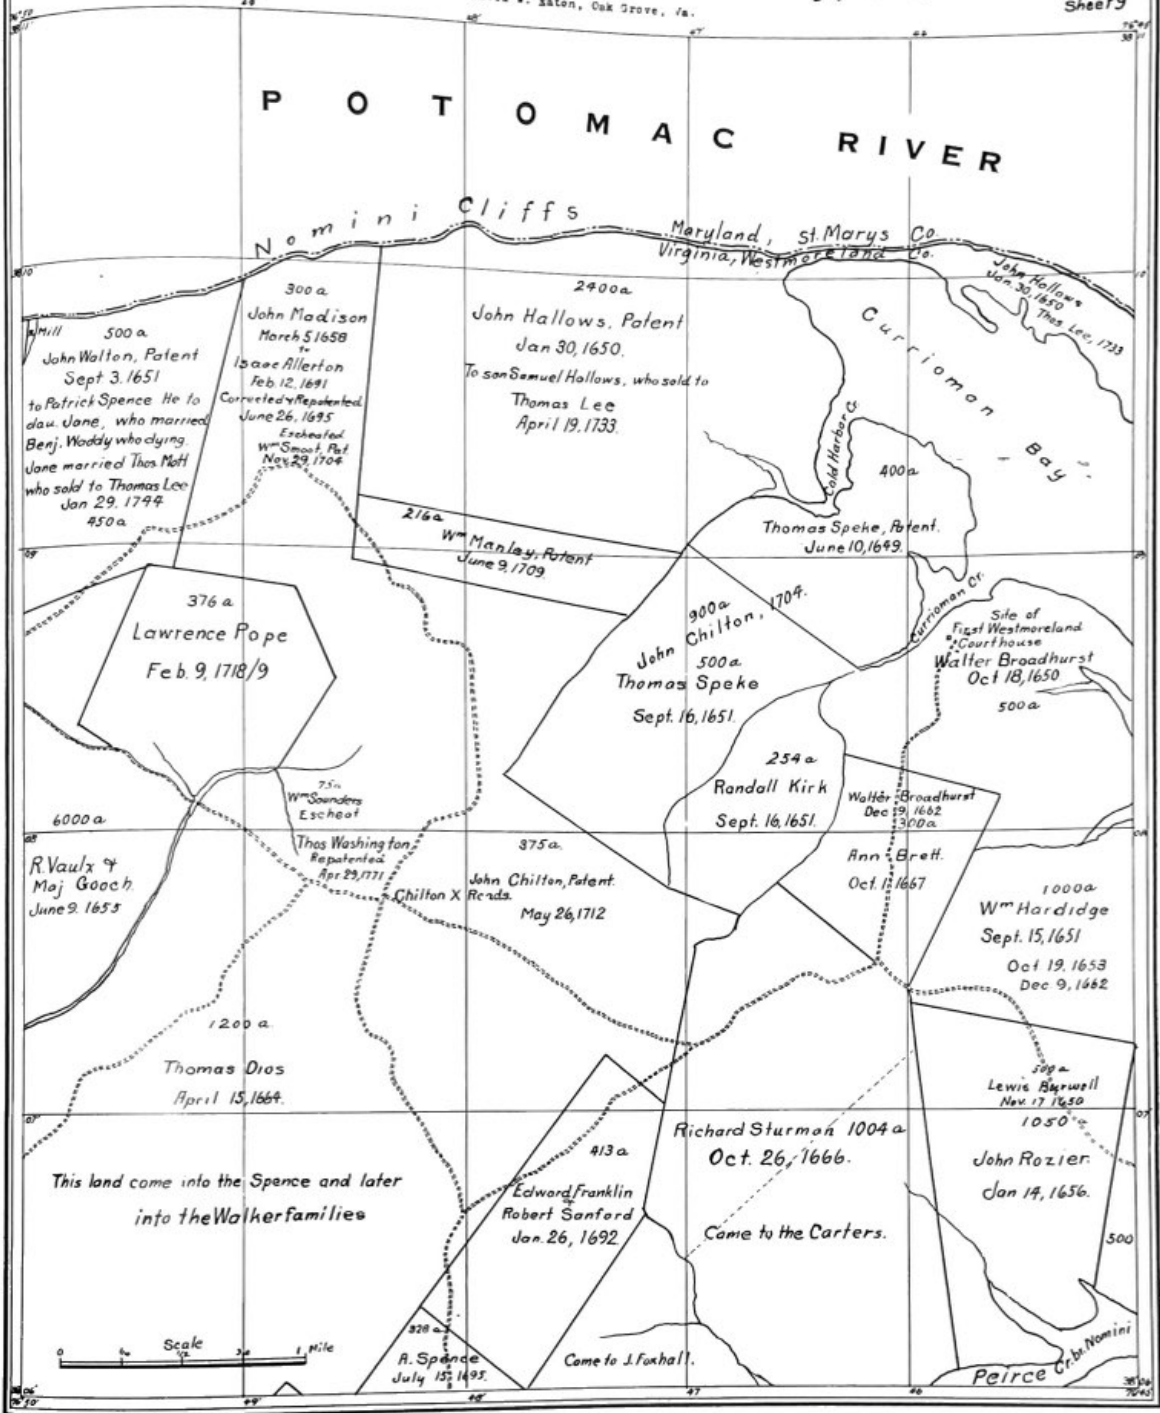 Eaton, Oak Grove, Va.
Sheet 9
POTOMAC RIVER
Nomini Cliffs
Maryland, St. Marys Co.
Virginia, Westmoreland Co.
John Hallows
Jan. 30, 1650
Thos Lee, 1733
Currioman Bay
Mill
500a
John Walton, Patent
Sept 3. 1651
to Patrick Spence He to
dau. Jane, who married
Benj. Waddy who dying.
Jane married Thos Mott
who sold to Thomas Lee
Jan 29. 1744
450a
300a
John Madison
March 5 1658
to
Isaac Allerton
Feb. 12, 1691
Corrected & Repatented
June 26, 1695
Escheated
Wm Smoot, Pat.
Nov 29, 1704
2400a
John Hallows, Patent
Jan 30, 1650.
To son Samuel Hallows, who sold to
Thomas Lee
April 19, 1733.
Cold Harbor Cr.
400a
Thomas Speke, Patent.
June 10, 1649.
216a
Wm Manley, Patent
June 9, 1709.
Currioman Cr.
Site of
First Westmoreland
Courthouse
Walter Broadhurst
Oct 18, 1650
500a
376a
Lawrence Pope
Feb. 9, 1718/9
900a
John Chilton, 1704.
500a
Thomas Speke
Sept. 16, 1651.
254a
Randall Kirk
Sept. 16, 1651.
Walter Broadhurst
Dec 9, 1662
300a
Ann Brett.
Oct. 1, 1667
75a
Wm Saunders
Escheat
Thos Washington
Repatented
Apr. 29, 1771
6000a
R. Vaulx &
Maj Gooch.
June 9. 1655
Chilton X Roads.
875a
John Chilton, Patent.
May 26, 1712
1000a
Wm Hardidge
Sept. 15, 1651
Oct 19. 1653
Dec 9, 1662
1200a
Thomas Dios
April 15, 1664.
500a
Lewis Burwell
Nov. 17 1650
1050a
John Rozier.
Jan 14, 1656.
500
Richard Sturman 1004a
Oct. 26, 1666.
Came to the Carters.
413a
Edward Franklin
&
Robert Sanford
Jan. 26, 1692
This land come into the Spence and later
into the Walker families
328a
A. Spence
July 15, 1695.
Come to J. Foxhall.
Peirce Cr. br. Nomini
Scale
0 1/4 1/2 3/4 1 Mile
49' 48' 47 46